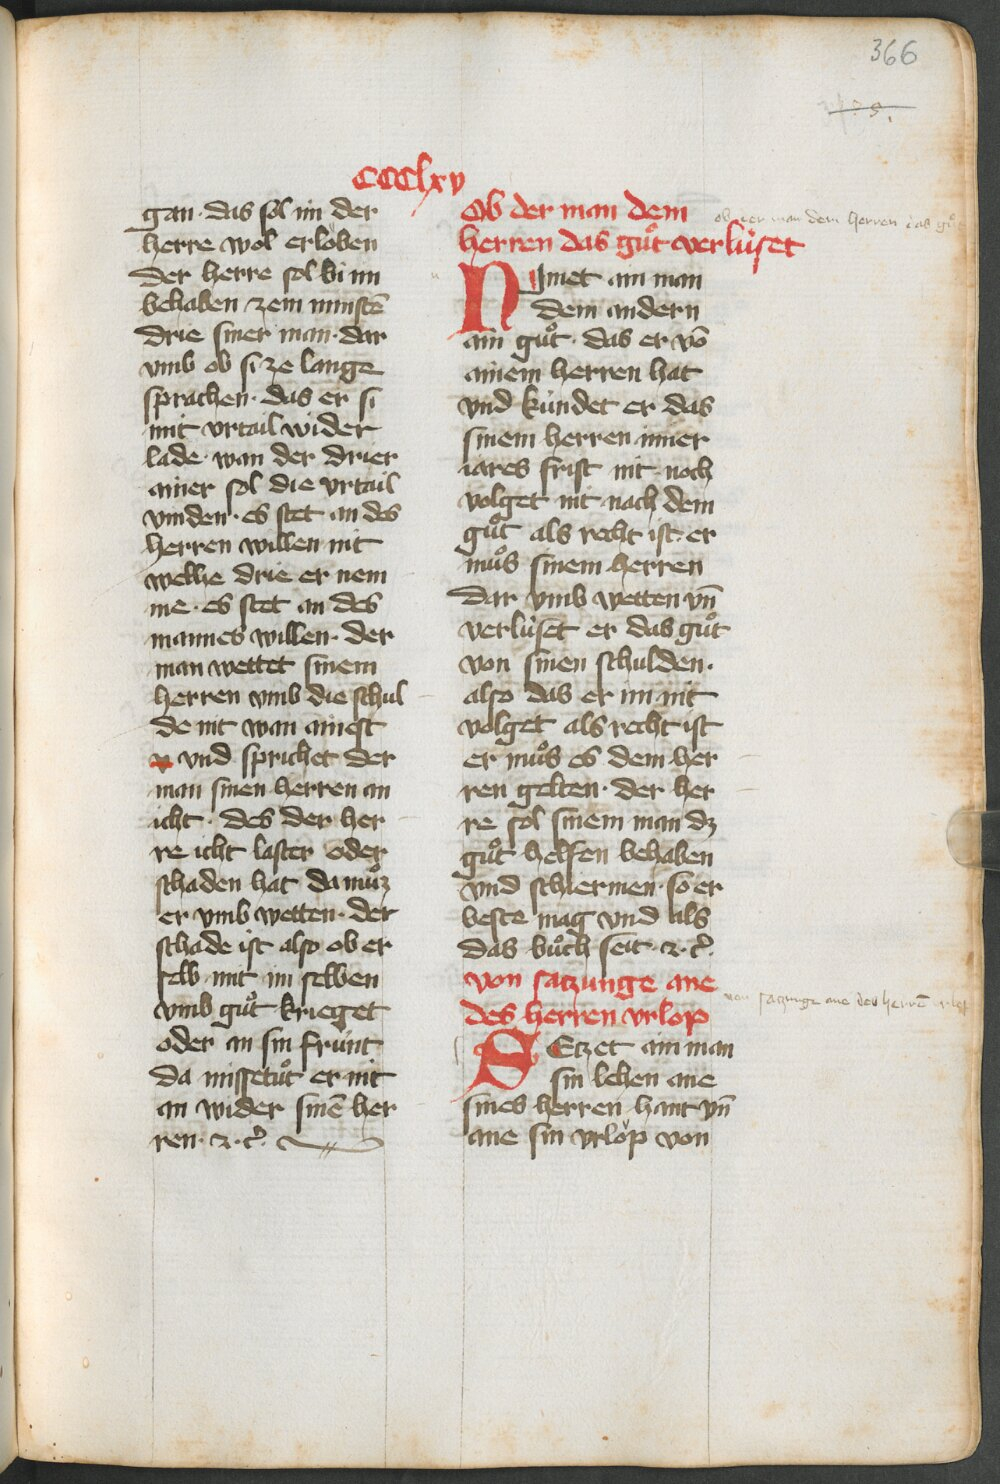 366
CCCClxv
gan· das sol im der
herre wol erloͮben
der herre sol bi im
behaben zem minstē
drie siner man· dar
vmb ob si ze lange
sprachen· das er si
mit vrtail wider
lade· wan der drier
ainer sol die vrtail
vinden· es stet an des
herren willen nit
welhe drie er nem
me· es stet an des
mannes willen· der
man wettet sinem
herren vmb die schul
de nit wan ainest
vnd sprichet der
man sinen herren an
icht· des der her
re icht laster oder
schaden hat da muͦz
er vmb wetten· der
schade ist also ob er
selb mit im selben
vmb guͦt krieget
oder an sin frúnt
da missetuͦt er nit
an wider sinē her
ren· ⁊·cͣ·
Ob der man dem
herren das guͦt verlúset
NJmet ain man
dem andern
ain guͦt· das er vō
ainem herren hat
vnd kúndet er das
sinem herren inner
iares frist nit noch
volget nit nach dem
guͦt als recht ist· er
muͦs sinem herren
dar vmb wetten vn̄
verlúset er das guͦt
von sinen schulden·
also das er im nit
volget als recht ist
er muͦs es dem her
ren gelten· der her
re sol sinem man dz
guͦt helfen behaben
vnd schiermen· so er
beste mag vnd als
das buͦch seit· ⁊·cͣ·
von satzunge ane
des herren vrlop
SEtzet ain man
sin lehen ane
sines herren hant vn̄
ane sin vrloͮp von
ob der man dem herren das guͦt
von satzunge ane des herrē vrlop